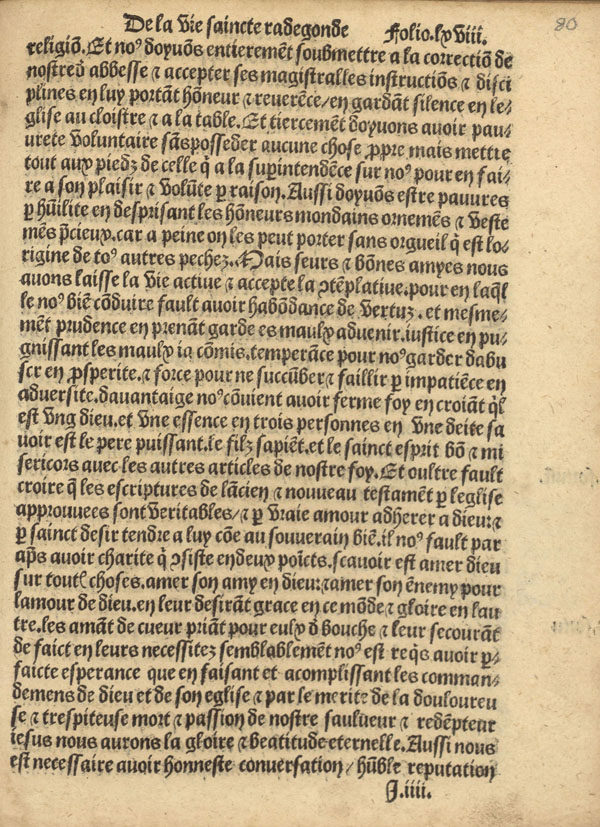 De la vie saincte radegonde Folio.lxviii. 80
religiõ. Et noꝰ doyuõs entieremẽt soubmettre a la correctiõ de
nostred̛ abbesse ⁊ accepter ses magistralles instructiõs ⁊ disci
plines en luy portãt hõneur ⁊ reuerẽce/ en gardãt silence en le⸗
glise au cloistre ⁊ a la table. Et tiercemẽt doyuons auoir pau⸗
urete voluntaire sãs posseder aucune chose ꝓpre mais mettre
tout aux piedz de celle q̃ a la supintendẽce sur noꝰ pour en fai⸗
re a son plaisir ⁊ volũte ꝑ raison. Aussi doyuõs estre pauures
ꝑ hũilite en desprisant les hõneurs mondains ornemẽs ⁊ veste
mẽs p̃cieux. car a peine on les peut porter sans orgueil q̃ est lo⸗
rigine de toꝰ autres pechez. Mais seurs ⁊ bõnes amyes nous
auons laisse la vie actiue ⁊ accepte la ꝯtẽplatiue. pour en laq̃l
le noꝰ biẽ cõduire fault auoir habõdance de vertuz. et mesme⸗
mẽt prudence en prenãt garde es maulx aduenir. iustice en pu⸗
gnissant les maulx ia cõmis. temperãce pour noꝰ garder dabu
ser en ꝓsperite. ⁊ force pour ne succũber ⁊ faillir ꝑ impatiẽce en
aduersite. dauantaige noꝰ cõuient auoir ferme foy en croiãt q̃l
est vng dieu. et vne essence en trois personnes en vne deite sa
uoir est le pere puissant. le filz sapiẽt. et le sainct esprit bõ ⁊ mi
sericors auec les autres articles de nostre foy. Et oultre fault
croire q̃ les escriptures de lãcien ⁊ nouueau testamẽt ꝑ leglise
approuuees sont veritables/ ⁊ ꝑ vraie amour adherer a dieu: ⁊
ꝑ sainct desir tendre a luy cõe au souuerain biẽ. il noꝰ fault par
ap̃s auoir charite q̃ ꝯsiste en deux poĩcts. scauoir est amer dieu
sur toutꝭ choses. amer son amy en dieu: ⁊ amer son ẽnemy pour
lamour de dieu. en leur desirãt grace en ce mõde ⁊ gloire en lau
tre. les amãt de cueur priãt pour eulx d̛ bouche ⁊ leur secourãt
de faict en leurs necessitez semblablemẽt noꝰ est req̃s auoir ꝑ⸗
faicte esperance que en faisant et acomplissant les comman⸗
demens de dieu et de son eglise ⁊ par le merite de la douloureu
se ⁊ trespiteuse mort ⁊ passion de nostre saulueur ⁊ redẽpteur
iesus nous aurons la gloire ⁊ beatitude eternelle. Aussi nous
est necessaire auoir honneste conuersation/ hũble reputation
J.iiii.